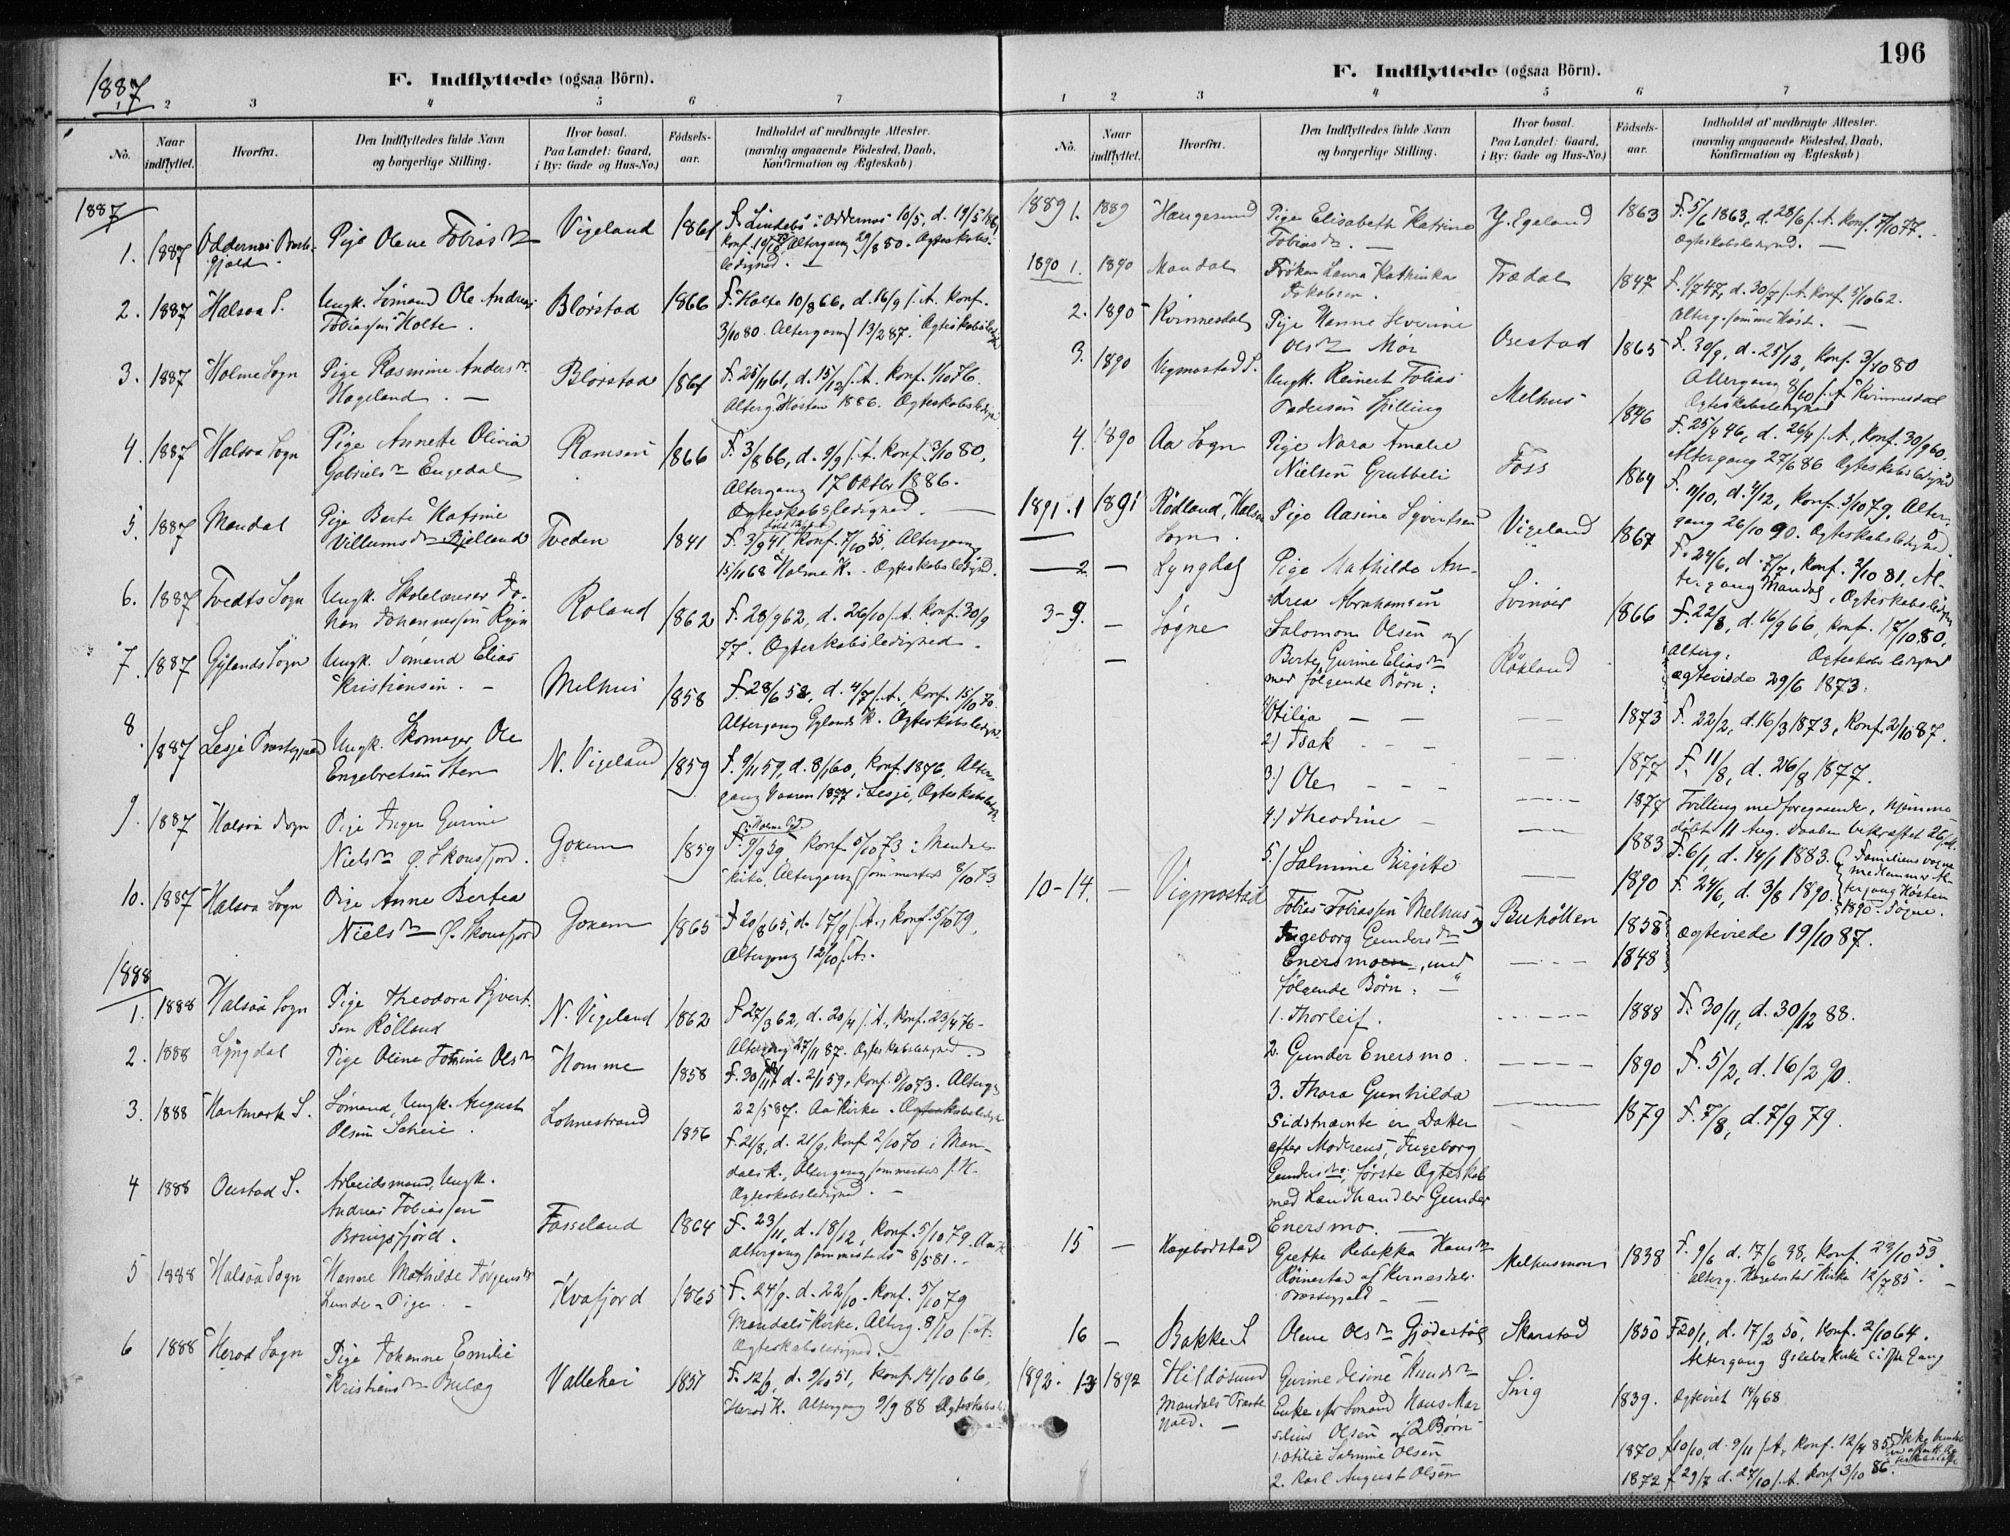 1887
F. Indflyttede (ogsaa Börn).
1 2 3 4 5 6 7
No.
Naar indflyttet.
Hvorfra.
Den Indflyttedes fulde Navn
og borgerlige Stilling.
Hvor bosat.
Paa Landet: Gaard,
i By: Gade og Hus-No.)
Födsels-
aar.
Indholdet af medbragte Attester.
(navnlig angaaende Födested, Daab,
Konfirmation og Ægteskab)
1887
1. 1887 Oddernes Præste-
gjeld
Pige Olene Tobiasdr
Vigeland 1861
2. 1887 Halsaa S.
Ungk. Sømand Ole Andreas
Tobiassen Holte.
Blørstad 1866
F. Holte 10/8 66, d. 16/9 s.A. Konf.
3/10 80. Altergang 13/2 87. Ægteskabsledig
3. 1887 Holme Sogn
Pige Rasmine Andersdr
Hageland. —
Blørstad 1861
F. 25/11 61, d. 15/12 s.A. Konf. 1/10 76.
Alterg. Høsten 1886. Ægteskabsledig
4. 1887 Halsaa Sogn
Pige Annete Olivia
Gabrielsdr Eugedal
Ramsen 1866
F. 3/8 66, d. 9/9 s.A. Konf. 3/10 80.
Altergang 17 Oktbr 1886.
Ægteskabsledighed. —
5. 1887 Mandal
Pige Berte Katrine
Villumsdr Bjelland
Tveden 1841
F. 3/9 41, Konf. 7/10 55, Altergang
15/11 68 Holme K. - Ægteskabsledighed.
6. 1887 Tvedts Sogn
Ungk. Skolelærerer Jo-
han Johannessen
Roland 1862
F. 28/9 62, d. 26/10 s.A. Konf. 30/9
77. Ægteskabsledighed.
7. 1887 Gylands Sogn
Ungk. Sømand Elias
Kristiansen. —
Melhus 1858
F. 28/6 58, d. 4/7 s.A., Konf. 15/10 70.
Altergang Gylands K. Ægteskabsledighed.
8. 1887 Lesje Præstegjæld
Ungk. Skomager Ole
Engebretsen Sten
N. Vigeland 1859
F. 9/11 59, d. 8/1 60, Konf. 1876, Alter-
gang Vaaren 1877 i Lesje, Ægteskabsledig
9. 1887 Halsaa Sogn
Pige Inger Gurine
Nielsdr Ø. Skonsfjord.
Gokem 1859
Konf. 5/10 73 i Mandals
Kirke, Altergang sammesteds 8/10 73
10. 1887 Halsaa Sogn
Pige Anne Bertea
Nielsdr Ø. Skonsfjord
Gokem 1865
F. 20/8 65, d. 17/9 s.A., Konf. 5/10 79,
Altergang 12/10 s.A.
1888
1. 1888 Halsaa Sogn
Pige Theodora Syvert-
sen Rölland
N. Vigeland 1862
F. 27/3 62, d. 20/4 s.A., Konf. 23/4 76-
Altergang 27/11 87. Ægteskabsledighed.
2. 1888 Lyngdal
Pige Oline Olsdr
Homme 1858
F. 30/11 d. 2/1 59, Konf. 5/10 73. Alterg.
22/5 87. Aa Kirke. Ægteskabsledigh
3. 1888 Hartmark S.
Sømand, Ungk. August
Olsen Scheie.
Lohnestrand 1856
F. 21/8, d. 21/9, Konf. 2/10 70 i Man-
dals K., Altergang sammesteds s.A.
Ægteskabsledighed. —
4 1888 S.
Arbeidsmand, Ungk.
Andreas Tobiassen
Bringsfjord.
Fasseland 1864
F. 23/11, d. 18/12, Konf. 5/10 79. Aa K.
Altergang sammesteds 8/5 81. -
5 1888 Halsaa Sogn
Hanne Mathilde Jørgensdr
Lunde - Pige. -
Kvafjord 1865
F. 24/9. d. 22/10. Konf. 5/10 79
Mandals Kirke. Alterg. 8/10 s.A.
Ægteskabsledighed. -
6 1888 Herod Sogn
Pige Johanne Emilie
Kristiansdr Birkeg
Vallehei 1851
F. 12/9, d. 9/10 51, Konf. 14/10 66,
Herod K. Altergang 9/9 88 Ægteskabsl.
196
F. Indflyttede (ogsaa Börn).
1 2 3 4 5 6 7
No.
Naar indflyttet.
Hvorfra.
Den Indflyttedes fulde Navn
og borgerlige Stilling.
Hvor bosat.
Paa Landet: Gaard,
i By: Gade og Hus-No.)
Födsels-
aar.
Indholdet af medbragte Attester.
(navnlig angaaende Födested, Daab,
Konfirmation og Ægteskab)
1889 1. 1889 Haugesund
Pige Elisabeth Katrine
Tobiasdr. —
Y. Egeland 1863
F. 5/6 1863, d. 28/6 s.A. Konf. 7/10 77.
Ægteskabsledighed. —
1890 1. 1890 Mandal
Frøken Laura Kathinka
Jakobsen.
Trædal 1847
F. 1/7 47, d. 30/7 s.A. Konf. 5/10 62.
Alterg. samme Høst. —
2. 1890 Kvinnesdal
Pige Hanne Severine
Olsdr Moe
Osestad 1865
F. 30/9, d. 25/12, Konf. 3/10 80
Altergang 8/10 s.A Kvinnesdal
Ægteskabsledighed
3. 1890 Vigmostad S.
Ungk. Reinert Tobias
Pedersen Spilling
Melhus 1846
F. 25/4 46, d. 26/4 s.A., Konf. 30/9 60.
Altergang 27/6 86 Ægteskabsledighed
4. 1890 Aa Sogn
Pige Nara Amalie
Nielsen Grubbeli
Foss 1864
F. 11/10, d. 4/12, Konf. 5/10 79, Alter-
gang 26/10 90. Ægteskabsledighed.
1891. 1 1891 Rödland, Halsaa
Sogn.
Pige Aasine Syvertsen
Vigeland 1867
F. 24/6, d. 7/7, Konf. 2/10 81, Al-
tergang Mandal, Ægteskabsledighed
2 — Lyngdal
Pige Mathilde An-
drea Abrahamsen
Svinøer 1866
F. 22/8, d. 16/9 66, Konf. 17/10 80,
Alterg: Ægteskabsledighed
3-9. — Søgne
Salomon Olsen og
Berte Gurine Eliasdr
med følgende Børn:
Röiland
ægteviede 29/6 1873.
1) Otilia — — 1873 F. 22/2, d. 16/3 1873, Konf. 2/10 87.
2) Isak - - - 1877 F. 11/8, d. 26/8 1877.
3.) Ole - - - 1877 Tvilling med foregaaende, hjemme-
døbt 11 Aug. Daaben bekræftet 26/8
4.) Theodine — 1883 F. 6/1, d. 14/1 1883.
5.) Salmine Birgitte 1890 F. 24/6, d. 3/8 1890.
Familiens voxne
medlemmer Al-
tergang Høsten
1890 i Søgne.
10-14. — Vigmostad
Tobias Tobiassen Melhus og
Ingeborg Gundersdr
Enersmoen, med
følgende Børn: —
1858
1848
ægteviede 19/10 87.
1. Thorleif. 1888 F. 30/11, d. 30/12 88.
2. Gunder Enersmo. 1890 F. 5/2, d. 16/2 90.
3. Thora Gunhilda 1879 F. 7/8, d. 7/9 79.
Sidstnævnte er Datter
efter Moderens, Ingeborg
Gundersdrs. første Ægteskab
med Landhandler Gunder
Enersmo. —
15 — Hægebodstad
Grethe Rebekka Hansdr
Röinestad af Kvinesdals
Præstegjæld —
Melhusmoen 1838
F. 9/6 d. 17/6 38, Konf. 23/10 53.
Alterg. Hægebostad Kirke 12/7 85. —
16 — Bakke S
Olene Olsdr Gjødestøl
Skarstad 1850
F 20/1, d. 17/2 50, Konf. 2/10 64.
Altergang Kirke
1892. 1-3 1892 Hildösund
Mandals Præste-
gjæld. —
Gurine Knudsdr
Enke efter Sømand Hans Mar-
selius Olsen og 2 Børn
Snig 1839. Ægteviet 14/4 68
1. Otilie Salmine Olsen 1870 f 10/10, d. 9/11 s.A, Konf. 12/4 85
2. Karl August Olsen 1872 f 29/7 d. 27/10 s.A. Konf 3/10 86.